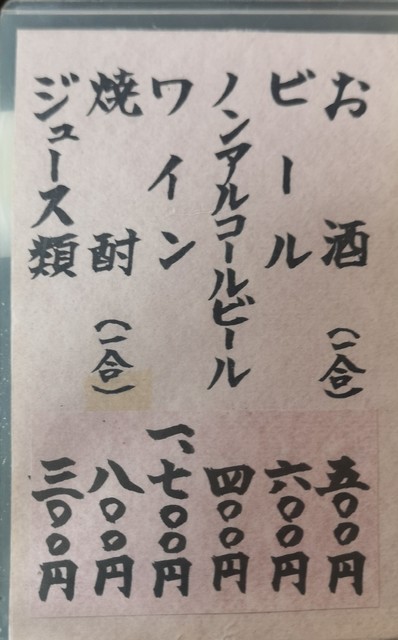 お酒（一合）五〇〇円
ビール 六〇〇円
ノンアルコールビール 四〇〇円
ワイン 一、七〇〇円
焼酎（一合）八〇〇円
ジュース類 三〇〇円